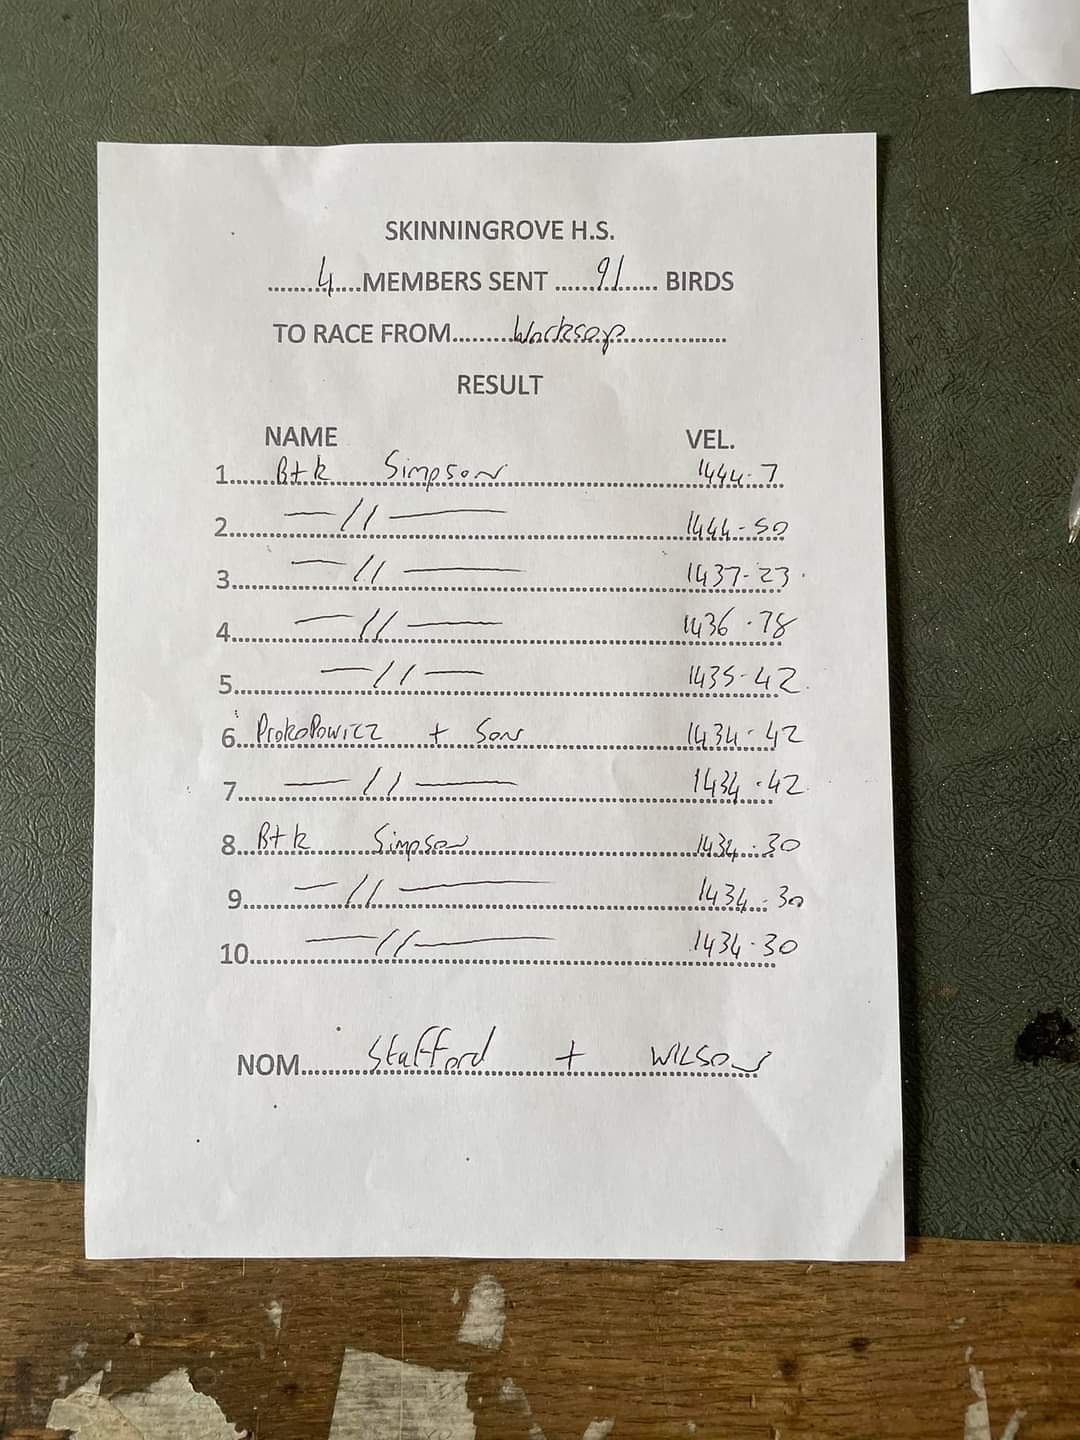 SKINNINGROVE H.S.
........4....MEMBERS SENT ......91...... BIRDS
TO RACE FROM.........Worksop...............
RESULT
NAME VEL.
1...... B+K Simpson 1444.7
2...... — // — 1444-50
3...... — // — 1437-23
4...... — // — 1436.78
5...... — // — 1435-42
6.. ProkoPowicz + Son 1434.42
7...... — // — 1434.42
8... B+K Simpson 1434.30
9...... — // — 1434.30
10...... — // — 1434.30
NOM......... Stafford + WILSON